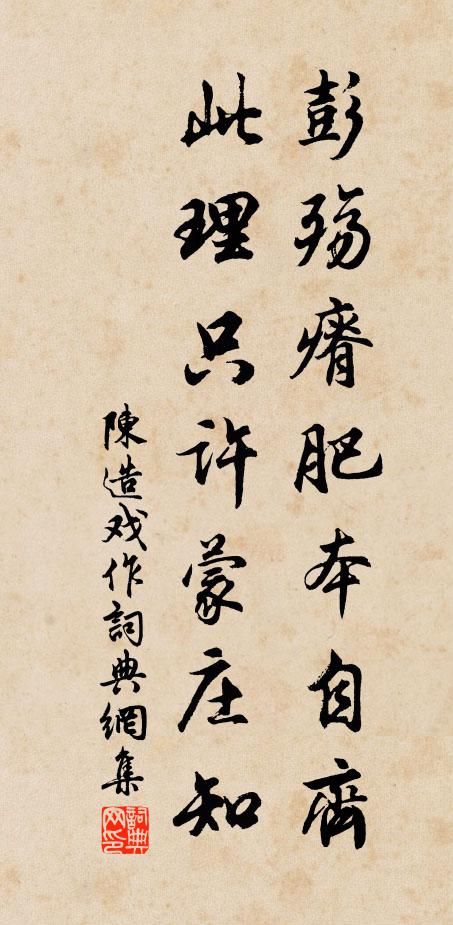 彭殤瘠肥本自齊
此理只許蒙庄知
陳造戏作詞典網集
詞典网印